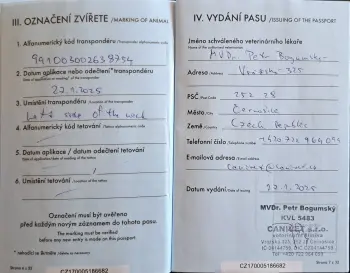 III. OZNAČENÍ ZVÍŘETE /MARKING OF ANIMAL
1. Alfanumerický kód transpondéru /Transponder alphanumeric code
991003002638754
2. Datum aplikace nebo odečtení transpondéru
/Date of application or reading of the transponder
22.1.2025
3. Umístění transpondéru /Location of the transponder
Left side of the neck
4. Alfanumerický kód tetování /Tattoo alphanumeric code
5. Datum aplikace / datum odečtení tetování
/Date of application/date of reading of the tattoo
6. Umístění tetování /Location of the tattoo
Označení musí být ověřena
před každým novým záznamem do tohoto pasu
The marking must be verified
before any new entry is made on this passport
* netetující se
Strana 6 z 32
CZ170005186682
IV. VYDÁNÍ PASU /ISSUING OF THE PASSPORT
Jméno schváleného veterinárního lékaře
/Name of the authorised veterinarian
MVDr. Petr Bogumský
Adresa /Address
325
PSČ /Post-Code
252 28
Město /City
Černošice
Země /Country
Czech Republic
Telefonní číslo /Telephone number
+420 720
E-mailová adresa
/E-mail address
Datum vydání /Date of issuing
22.1.2025
MVDr. Petr Bogumský
KVL 5483
CANIVET s.r.o.
veterinární klinika
Strana 7 z 32
CZ170005186682